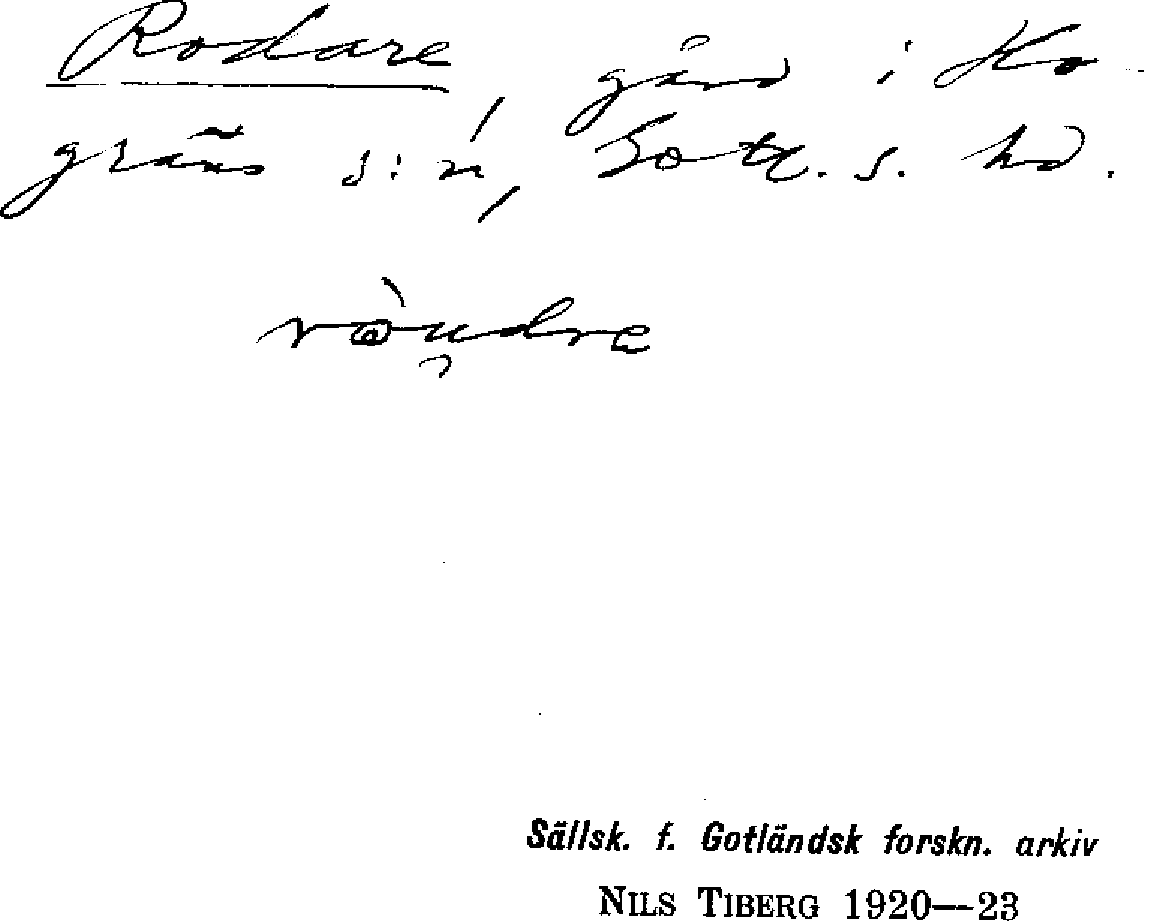 Rodare, gård i Ho-
gräns s:n, Gotl. s. hd.
ròu̯dre
Sällsk. f. Gotländsk forskn. arkiv
NILS TIBERG 1920—23